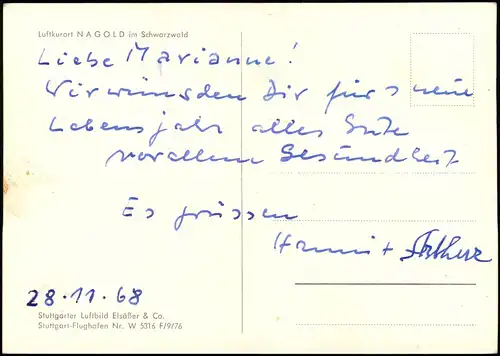 Luftkurort NAGOLD im Schwarzwald
Liebe Marianne!
Wir wünschen Dir für's neue
Lebensjahr alles Gute
vor allem Gesundheit
Es grüssen
Hanni +
28.11.68
Stuttgarter Luftbild Elsäßer & Co.
Stuttgart-Flughafen Nr. W 5316 F/9/76